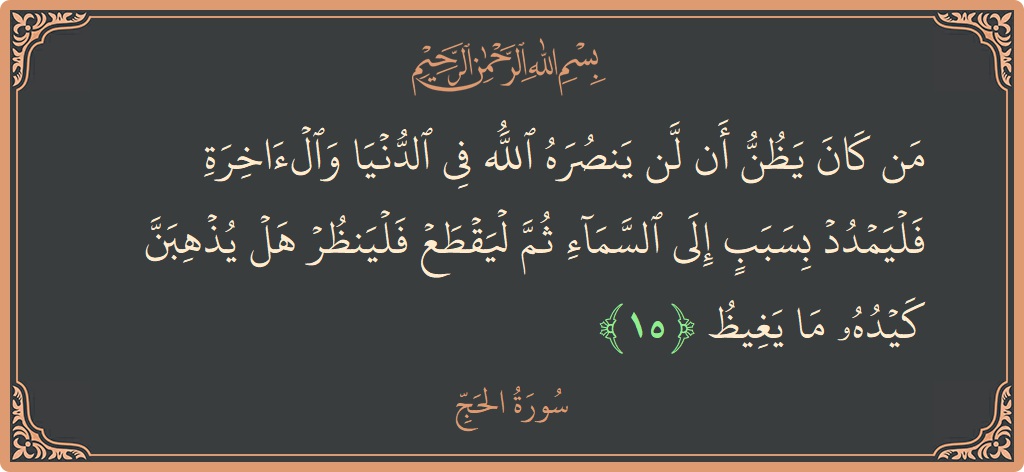 بِسْمِ اللهِ الرَّحْمٰنِ الرَّحِيْمِ
مَن كَانَ يَظُنُّ أَن لَّن يَنصُرَهُ ٱللَّهُ فِى ٱلدُّنۡيَا وَٱلۡءَاخِرَةِ
فَلۡيَمۡدُدۡ بِسَبَبٍ إِلَى ٱلسَّمَآءِ ثُمَّ لۡيَقۡطَعۡ فَلۡيَنظُرۡ هَلۡ يُذۡهِبَنَّ
كَيۡدُهُۥ مَا يَغِيظُ ﴿١٥﴾
سُورَةُ الحَجِّ